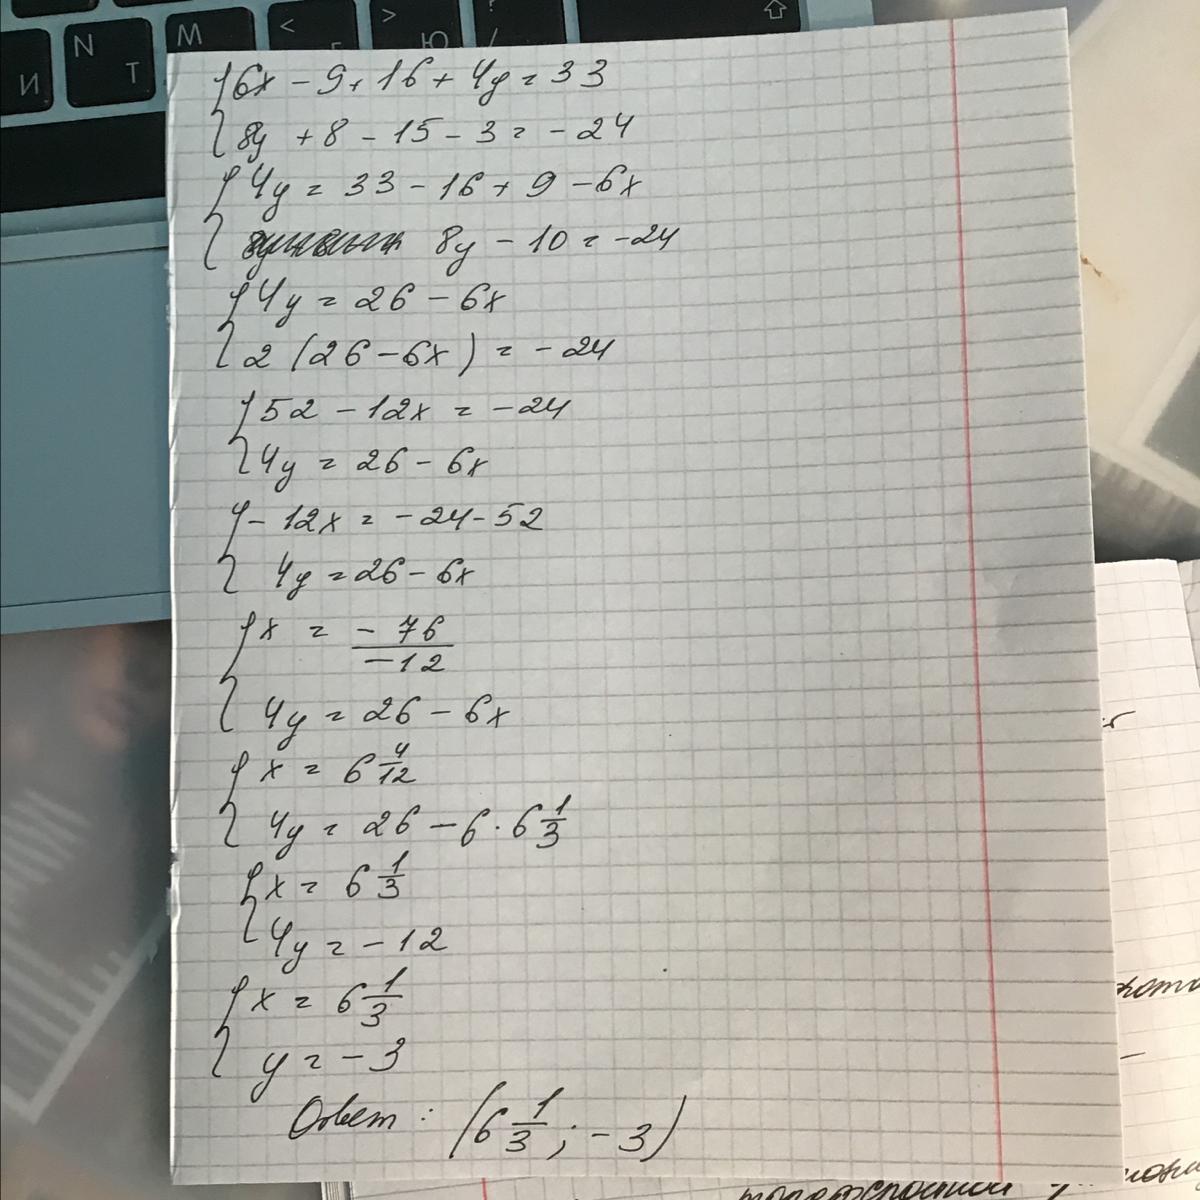 N М < > ?
И Т Г Ю /
{6x - 9 + 16 + 4y = 33
{8y + 8 - 15 - 3 = -24
{4y = 33 - 16 + 9 - 6x
{8y - 10 = -24
{4y = 26 - 6x
{2(26 - 6x) = -24
{52 - 12x = -24
{4y = 26 - 6x
{-12x = -24 - 52
{4y = 26 - 6x
{x = -76/-12
{4y = 26 - 6x
{x = 6 4/12
{4y = 26 - 6 · 6 1/3
{x = 6 1/3
{4y = -12
{x = 6 1/3
{y = -3
Ответ: (6 1/3; -3)